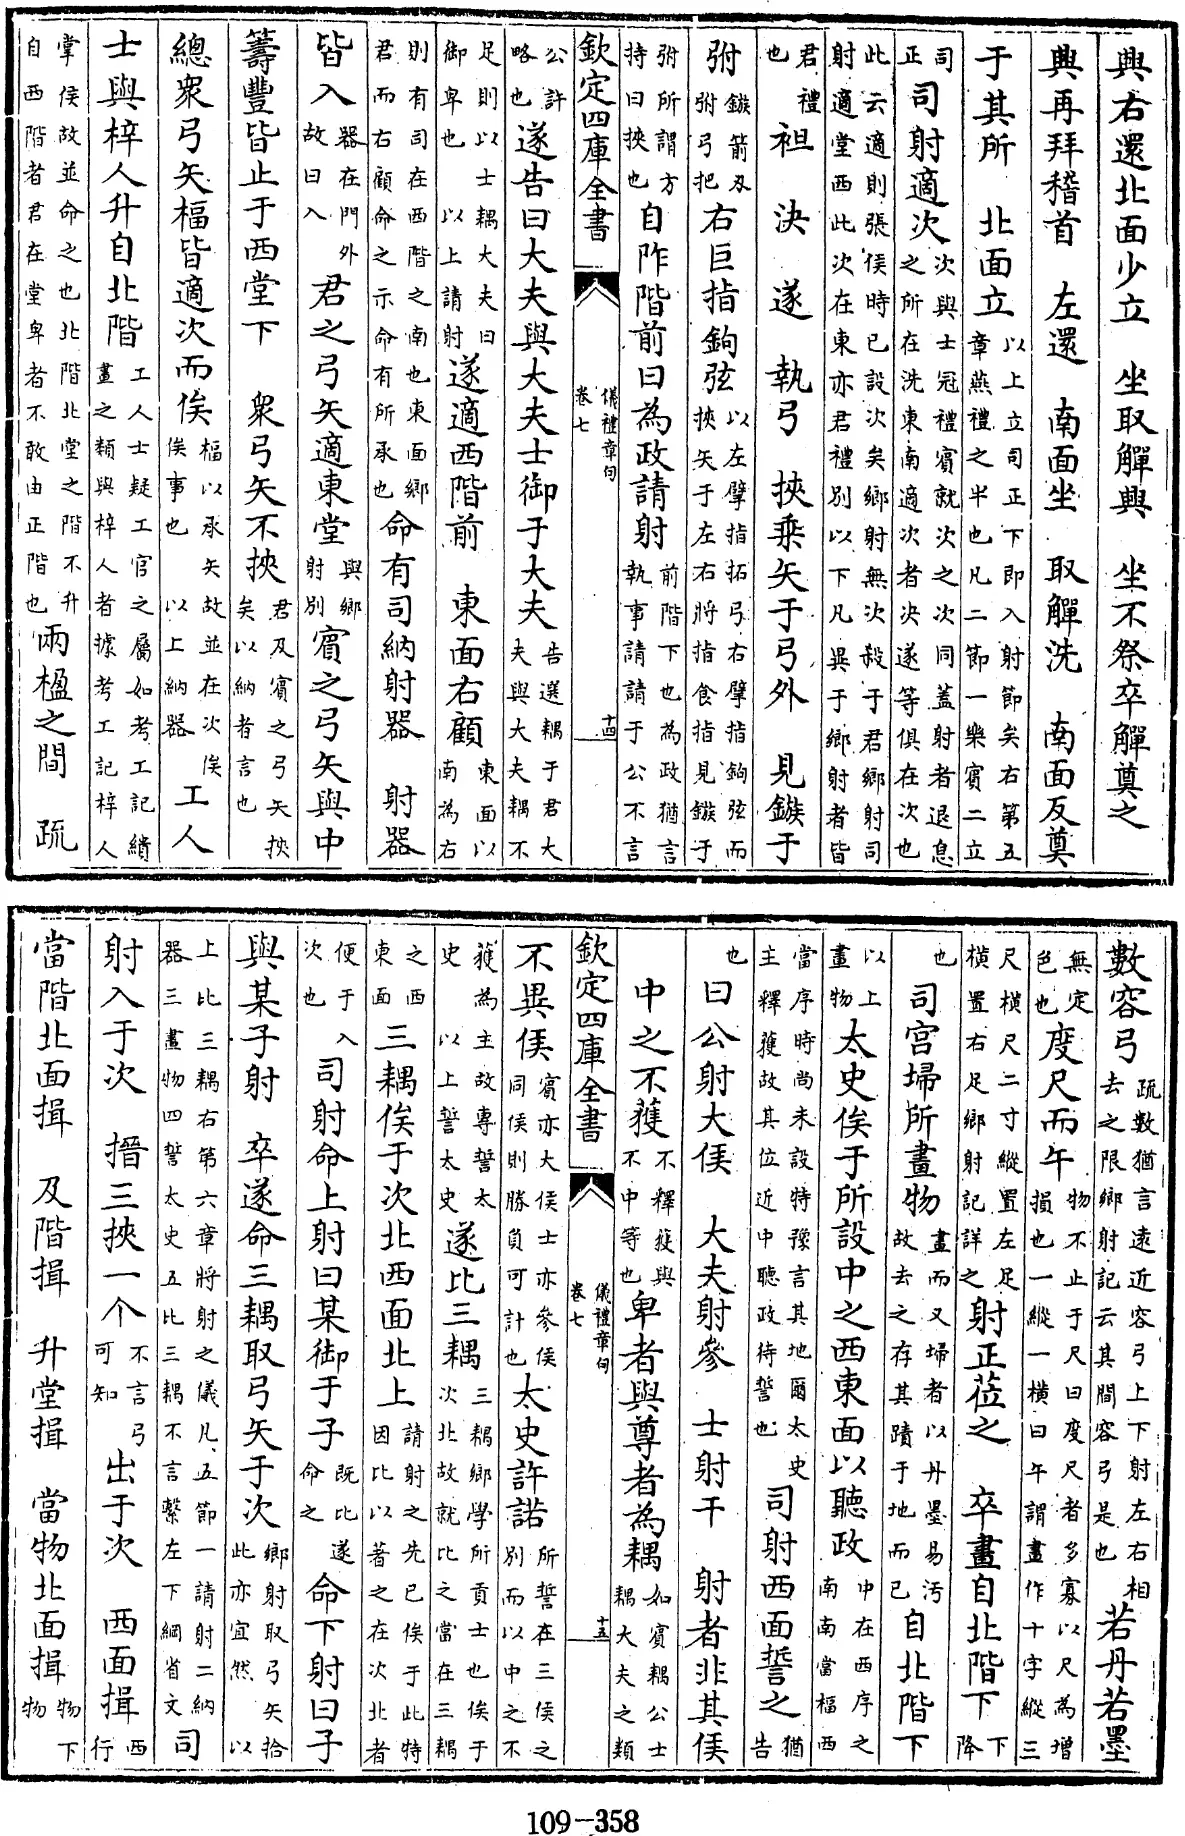 興右還北面少立 坐取觶興 坐不祭卒觶奠之
興再拜稽首 左還 南面坐 取觶洗 南面反奠
于其所 北面立 以上立司正下即入射節矣右第五章燕禮之半也凡二節一樂賓二立
司正 司射適次 次與士冠禮賓就次之次同蓋射者退息之所在洗東南適次者決遂等俱在次也
此云適則張侯時已設次矣鄉射無次殺于君鄉射司射適堂西此次在東亦君禮別以下凡異于鄉射者皆
君禮也 袒 決 遂 執弓 挾乘矢于弓外 見鏃于
弣 鏃箭刃弣弓把 右巨指鉤弦 以左擘指拓弓右擘指鉤弦而挾矢于左右將指食指見鏃于
弣所謂方持曰挾也 自阼階前曰為政請射 前階下也為政猶言執事請請于公不言
欽定四庫全書 儀禮章句 卷七 十四
公許略也 遂告曰大夫與大夫士御于大夫 告選耦于君大夫與大夫耦不
足則以士耦大夫曰御卑也 以上請射 遂適西階前 東面右顧 東面以南為右
則有司在西階之南也東面鄉君而右顧命之示命有所承也 命有司納射器 射器
皆入 器在門外故曰入 君之弓矢適東堂 與鄉射別 賓之弓矢與中
籌豐皆止于西堂下 眾弓矢不挾 君及賓之弓矢挾矣以納者言也
總眾弓矢楅皆適次而俟 楅以承矢故並在次俟俟事也 以上納器 工人
士與梓人升自北階 工人士疑工官之屬如考工記繢畫之類與梓人者據考工記梓人
掌侯故並命之也北階北堂之階不升自西階者君在堂卑者不敢由正階也 兩楹之間 疏
數容弓 疏數猶言遠近容弓上下射左右相去之限鄉射記云其間容弓是也 若丹若墨
無定色也 度尺而午 物不止于尺曰度尺者多寡以尺為增損也一縱一橫曰午謂畫作十字縱三
尺橫尺二寸縱置左足橫置右足鄉射記詳之 射正莅之 卒畫自北階下 下降
也 司宮埽所畫物 畫而又埽者以丹墨易污故去之存其蹟于地而已 自北階下
以上畫物 太史俟于所設中之西東面以聽政 中在西序之南南當楅西
當序時尚未設特豫言其地爾太史主釋獲故其位近中聽政待誓也 司射西面誓之 猶告
也 曰公射大侯 大夫射參 士射干 射者非其侯
中之不獲 不釋獲與不中等也 卑者與尊者為耦 如賓耦公士耦大夫之類
欽定四庫全書 儀禮章句 卷七 十五
不異侯 賓亦大侯士亦參侯同侯則勝負可計也 太史許諾 所誓在三侯之別而以中之不
獲為主故專誓太史 以上誓太史 遂比三耦 三耦鄉學所貢士也俟于次北故就比之當在三耦
之西東面 三耦俟于次北西面北上 請射之先已俟于此特因比以著之在次北者
便于入次也 司射命上射曰某御于子 既比遂命之 命下射曰子
與某子射 卒遂命三耦取弓矢于次 鄉射取弓矢拾此亦宜然 以
上比三耦右第六章將射之儀凡五節一請射二納器三畫物四誓太史五比三耦不言繫左下綱省文 司
射入于次 搢三挾一个 不言弓可知 出于次 西面揖 西行
當階北面揖 及階揖 升堂揖 當物北面揖 物下物
109-358